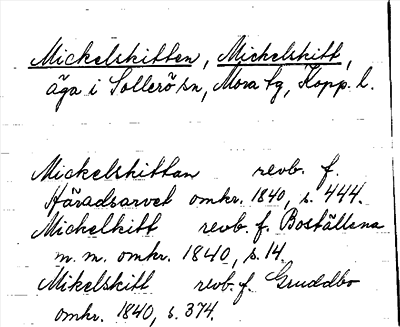 Mickelskitten, Mickelskitt,
äga i Sollerö sn, Mora tg, Kopp. l.
Mickelskittan revb. f.
Häradsarvet omkr. 1840, s. 444.
Michelkitt revb. f. Boställena
m. m. omkr. 1840, s. 14.
Mikelskitt revb. f. Gruddbo
omkr. 1840, s. 374.